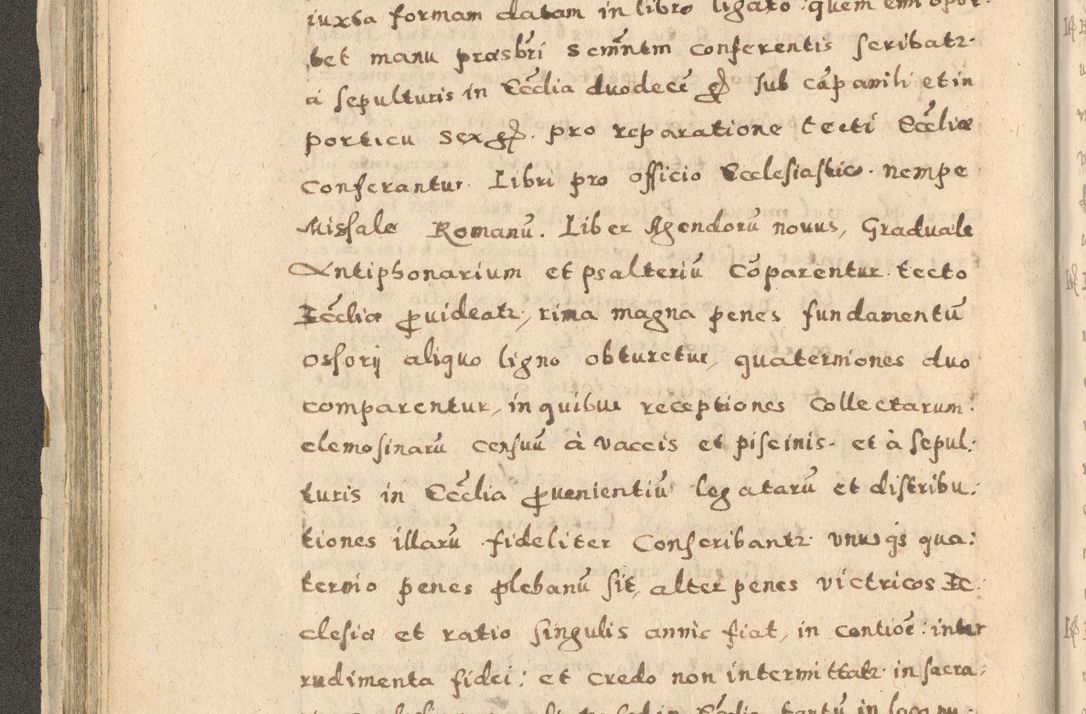 iuxta formam datam in libro ligato quem emi opor-
tet manu præsbri Semntm conferentis scribatr.
à sepulturis in Eccłia duodecē gł sub cāpanili et in
porticu sex gł. pro reparatione tecti Eccłiæ
Conferantur. Libri pro officio Ecclesiastico. nempe
Missale Romanū. Liber Agendorū novus, Graduale
Antiphonarium et psalteriū Cōparentur. tecto
Eccłiæ pvideatr, rima magna penes fundamentū
Osforij aliquo ligno obturetur, quaterniones duo
comparentur, in quibus receptiones Collectarum
elemosinarū censuū à vaccis et piscinis. et à sepul:
turis in Eccłia pvenientiū legatarū et distribu:
tiones illarū fideliter Conscribantr unus qs qua:
ternio penes plebanū sit, alter penes victricos Ec:
clesiæ et ratio singulis annis fiat, in contioē: inter
rudimenta fidei: et credo non intermittatr in sacra: